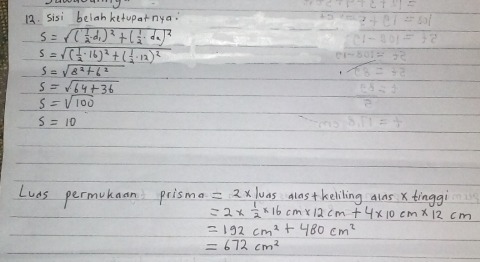 12. Sisi belah ketupatnya:
S = √(½·d₁)² + (½·d₂)²
S = √(½·16)² + (½·12)²
S = √8² + 6²
S = √64 + 36
S = √100
S = 10
Luas permukaan prisma = 2 x luas alas + keliling alas x tinggi
= 2 x ½ x 16 cm x 12 cm + 4 x 10 cm x 12 cm
= 192 cm² + 480 cm²
= 672 cm²